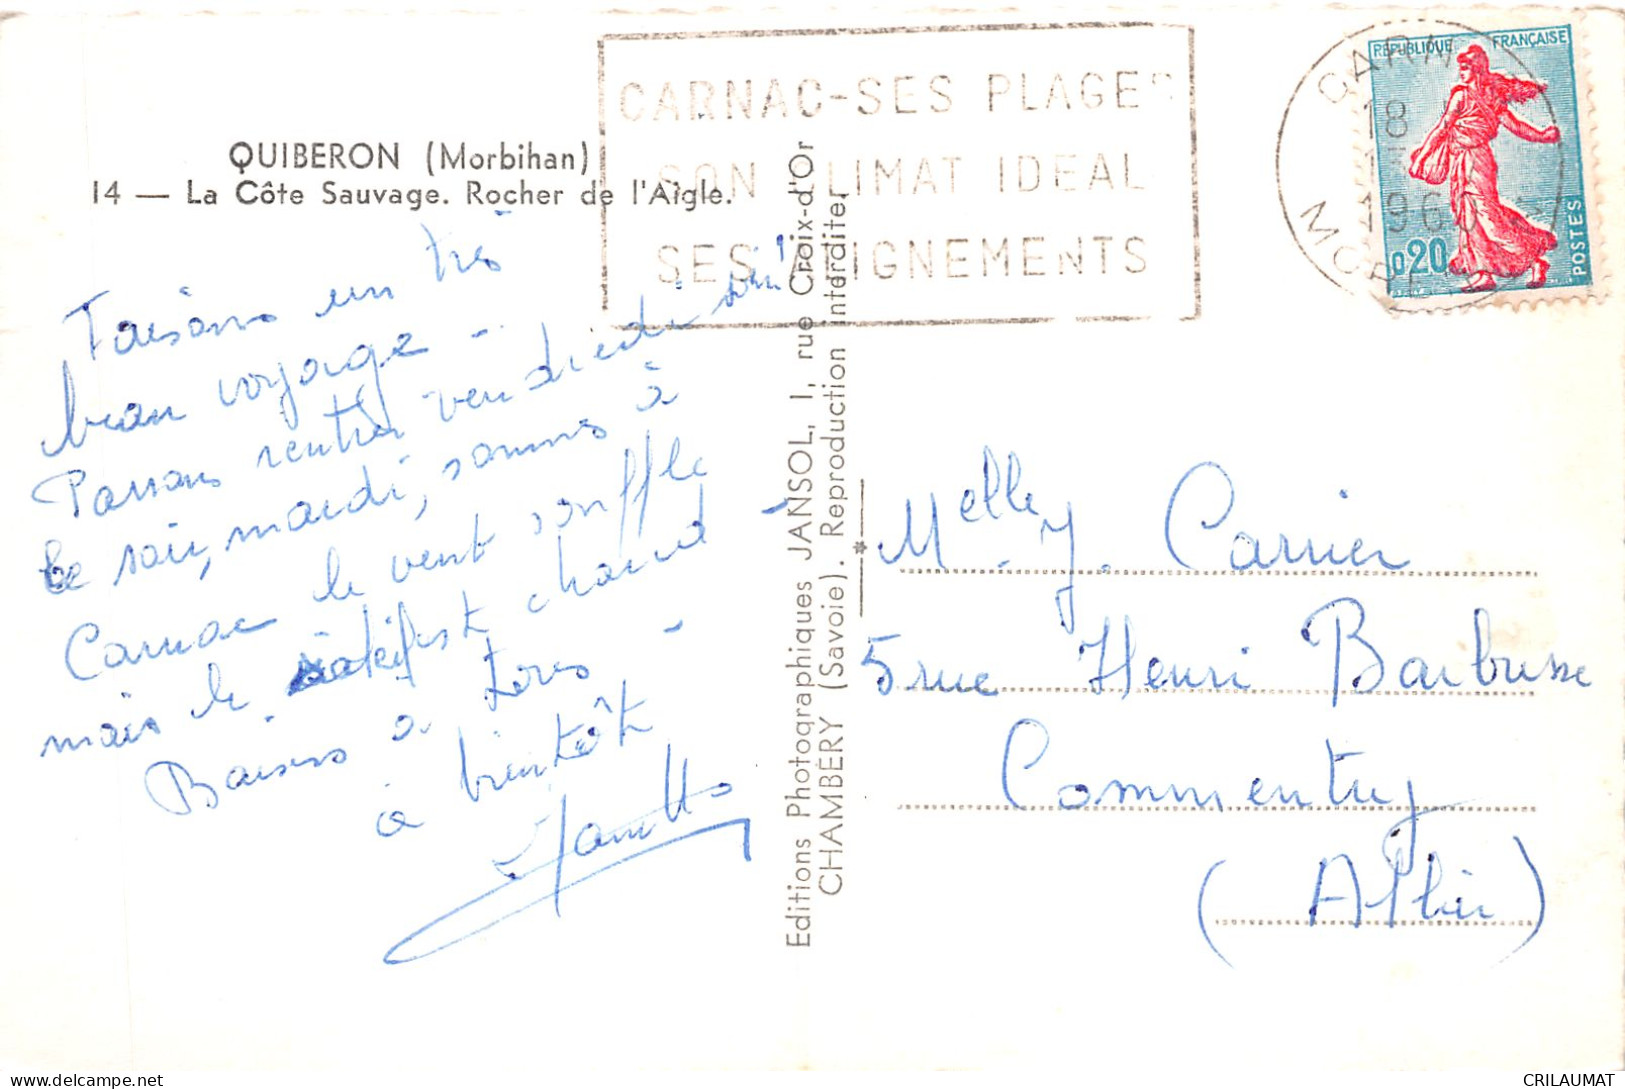 QUIBERON (Morbihan)
14 — La Côte Sauvage. Rocher de l'Aigle.
CARNAC-SES PLAGES
SON CLIMAT IDEAL
SES ALIGNEMENTS
CARNAC
18
1960
MORBIHAN
REPUBLIQUE FRANÇAISE
0,20
POSTES
Faisons un très
beau voyage -
Pensons rentrer vendredi soir
Ce soir, mardi, sommes à
Carnac le vent souffle
mais le est chaud -
Baisers à tous -
à bientôt
Editions Photographiques JANSOL, 1, rue Croix-d'Or
CHAMBÉRY (Savoie). Reproduction interdite.
Melle J. Carrier
5 rue Henri Barbusse
Commentry
(Allier)
delcampe.net
CRILAUMAT